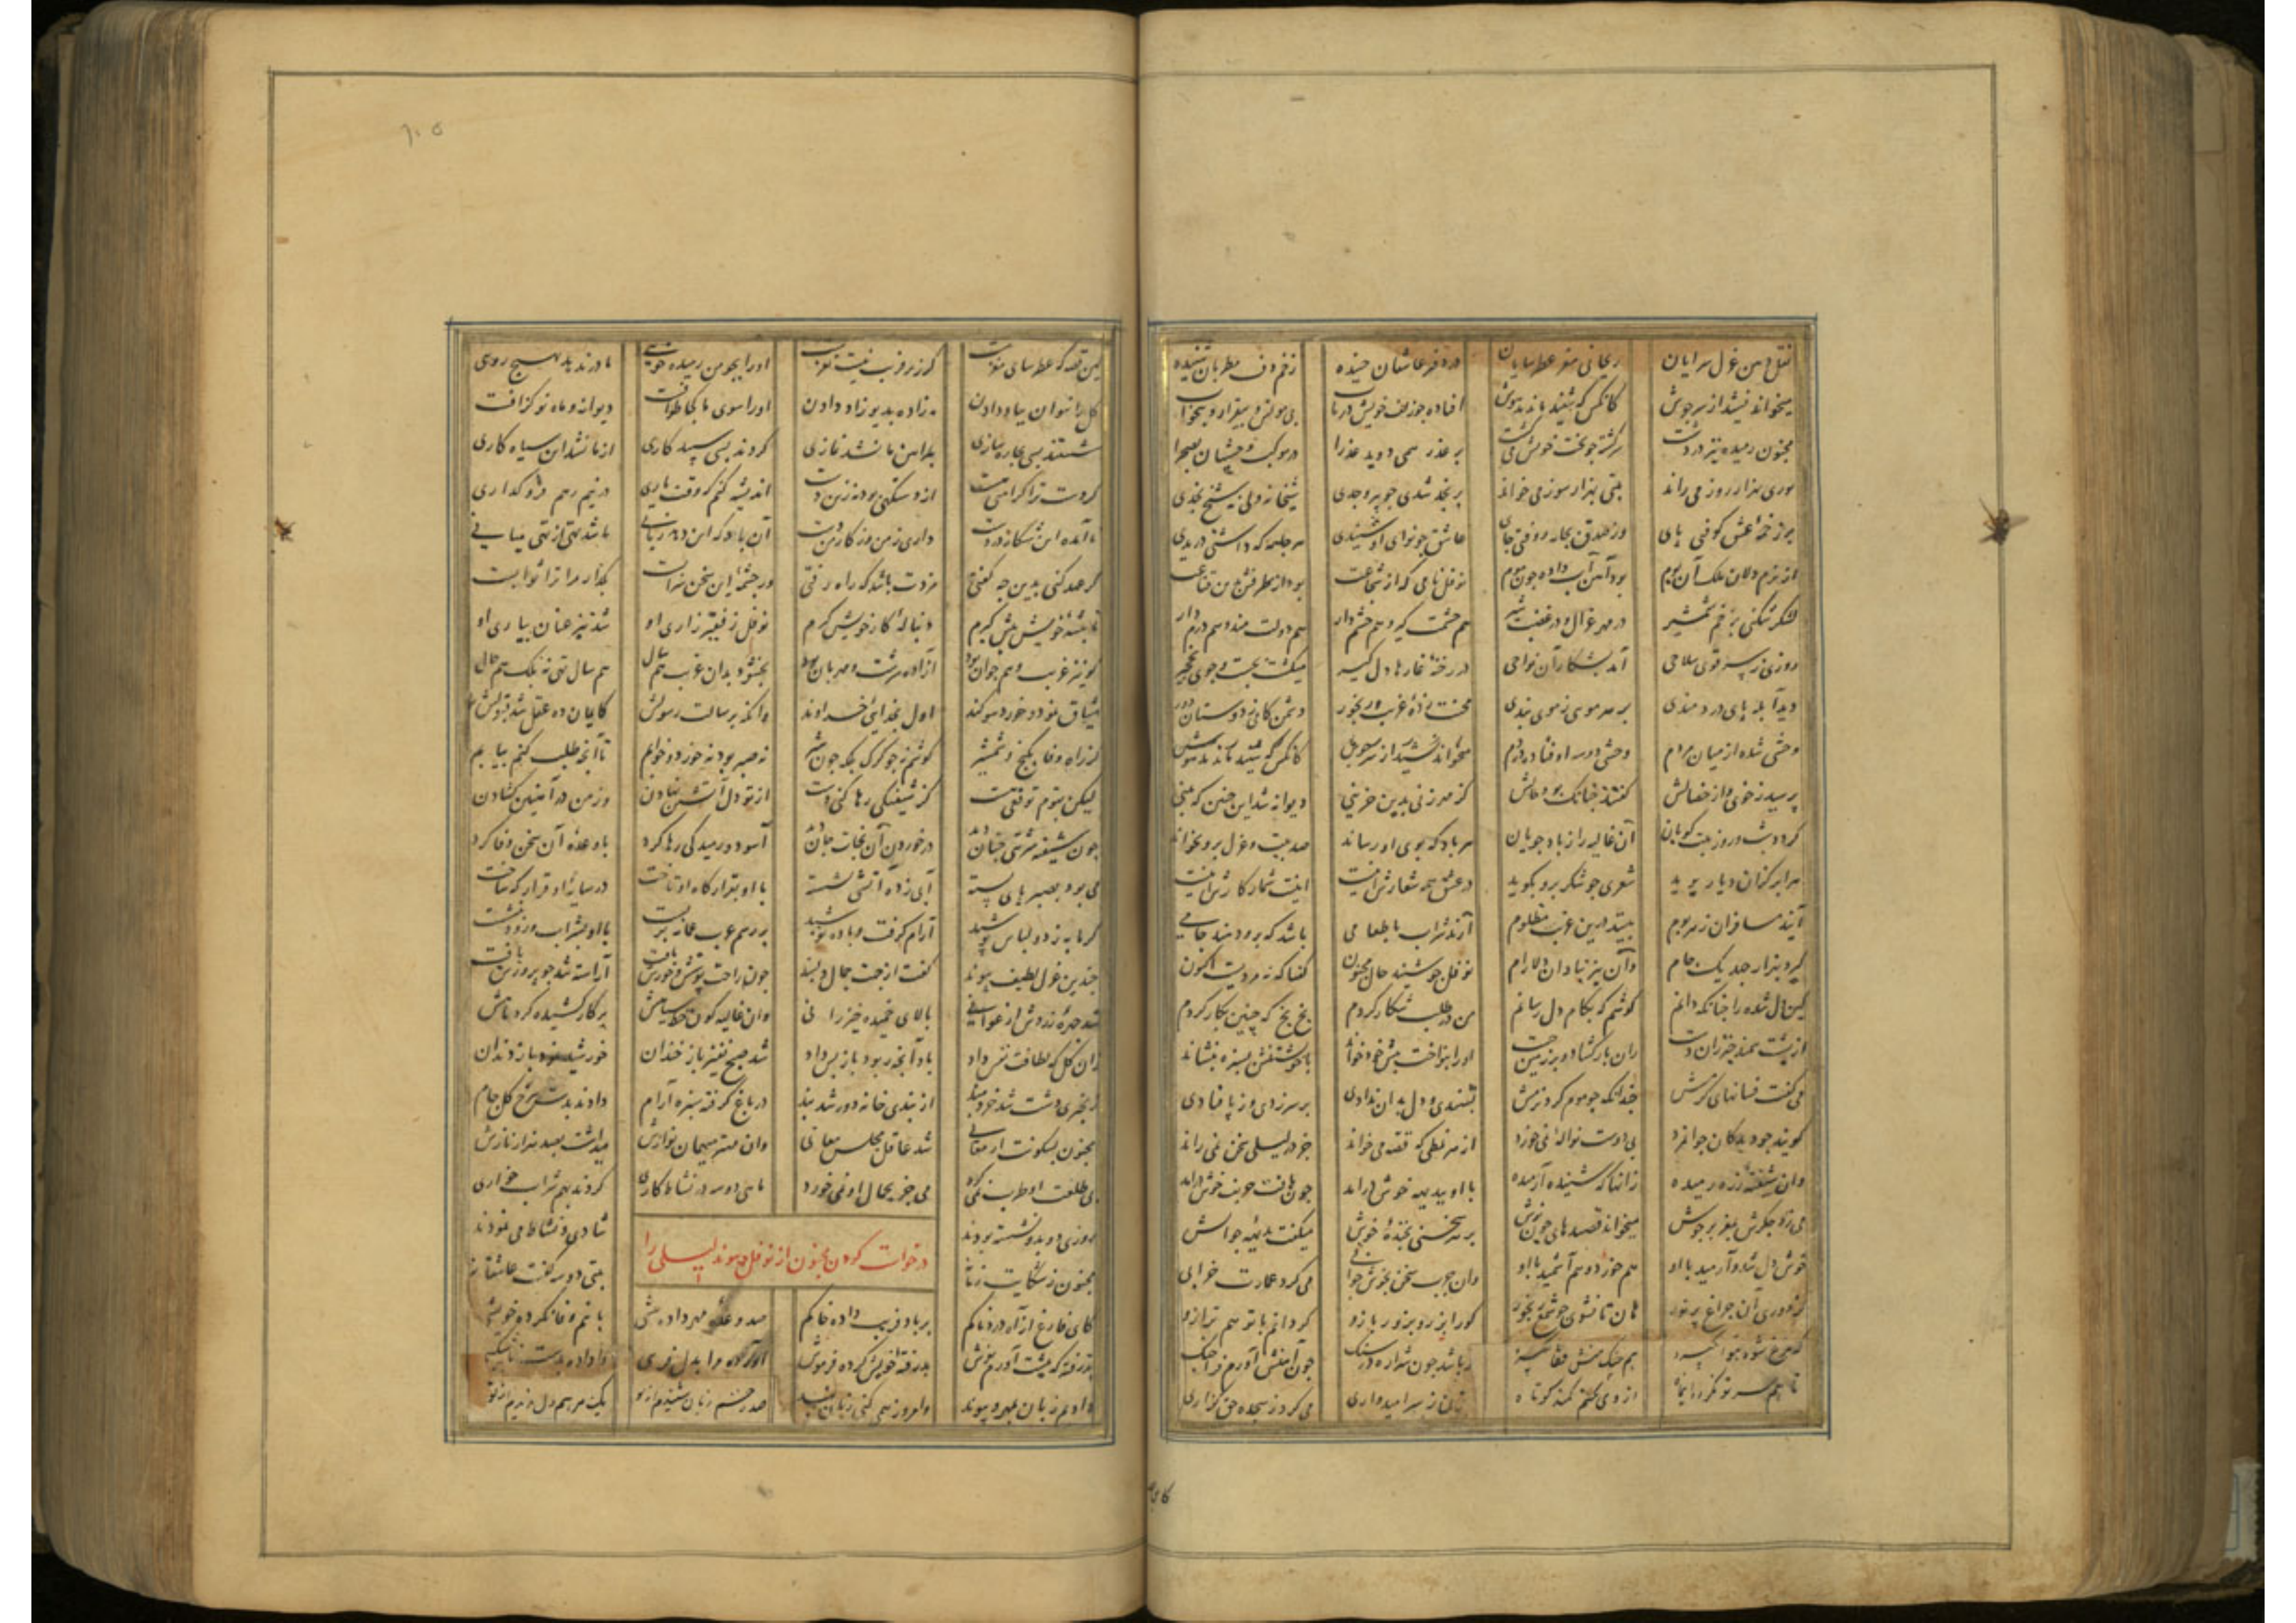 نقل دهن غزل سرایان ریحانی مغز عطرسایان در دفتر عاشقان خنیده زخم دف مطربان تنیده
میخواند نشید از سر جوش کانکس که شنید ماند بیهوش افتاده جو زلف خویش در تاب بی مونس و بیقرار و بیخواب
مجنون رمیده نیز در دشت سرگشته جو بخت خویش می گشت بر عذر همی دوید عذرا در موکب وحشیان بصحرا
بوری بهزار روز می راند بیتی بهزار سوز می خواند بر نجد شدی جو پیر وجدی شیخانه ولی نه شیخ نجدی
بر زخمهٔ عشق کوفتی پای وز صدق بجار رو رفتی جای عاشق جو نوای او شنیدی هر جامه که داشتی دریدی
از نرم دلان ملک آن بوم بود آهن آب داده جون موم نوفل نامی که از شجاعت بود آن طرفش بزین قناعت
لشکر شکنی بزخم شمشیر در مهر غزال و در غضب شیر هم حشمت گیر و هم حشم دار هم دولت مند و هم درم دار
روزی ز سر قوی سلاحی آمد بشکار آن نواحی در رخنهٔ غارهای دلگیر میگشت بجست و جوی نخجیر
دید آبله پای دردمندی بر هر موی ز موی بندی محنت زدهٔ غریب و رنجور دشمن کامی ز دوستان دور
وحشی شده از میان مردم وحشی دو سه اوفتاده در دم میخواند نشید از سر جوش کانکس که شنید ماند بیهوش
پرسید ز خوی و از خصالش گفتند چنانک بود حالش کز مهر زنی بدین حزینی دیوانه شد این چنین که بینی
گردد شب و روز بیت گویان آن غالیه را ز باد جویان هر باد که بوی او رساند صد بیت و غزل برو بخواند
هر ابر کزان دیار پوید شعری جو شکر برو بگوید در عشق همه شعارش اینست اینست شمار کارش اینست
آیند مسافران ز هر بوم بینند درین غریب مظلوم آرند شراب یا طعامی باشد که برو دهند جامی
گیرد بهزار جهد یک جام وآن نیز بیاد آن دلارام نوفل جو شنید حال مجنون گفتا که ز مردمیست اکنون
کین دل شده را چنانکه دانم کوشم که بکام دل رسانم من در طلب شکار کردم بخ بخ که چنین بکار کردم
از پشت سمند خیزران دست ران باز گشاد و بر زمین جست او را بنواخت پیش خود خواند با خویشتنش بسفره بنشاند
می گفت فسانهای گرمش چندانکه جو موم کرد نرمش نشنیدی و دل بدان ندادی بر سر زدی و ز پا فتادی
گوینده جو دید کان جوانمرد بی دوست نواله نمی خورد از هر نمطی که قصه می خواند جز در لیلی سخن نمی راند
وان شیفتهٔ زره رمیده زانها که شنید آرمیده با او ببدیهه خوش درآمد جون یافت حریف خوش درآمد
می زد جگرش بمغز بر جوش میخواند قصیدهای جون نوش بر هر سخنی بخندهٔ خوش میگفت بدیهه جوابش
خوش دل شد و آرمید با او هم خورد و هم آشمید با او وان چرب سخن بخوش جوابی می کرد عمارت خرابی
کز دوری آن چراغ پر نور هان تا نشوی جو شمع رنجور کو را بزر و بزور بازو گردانم با تو هم ترازو
گر مرغ شود هوا بگیرد هم چنگ منش قفا بگیرد باشد جون شراره در سنگ جون آهنش آورم فرا چنگ
تا همسر تو نگردد آن ماه از وی نکنم کمند کوتاه زان ز سر امیدواری می کرد ز سجده حق گزاری
کاین
کین قصه که عطرسای مغزست گر زرق و فریب نیست نغزست او را بچو من رمیده خویی مادر ندهد بهیچ رویی
گل را نتوان بباد دادن مه زاده بدیو زاد دادن او را سوی ما کجا طوافست دیوانه و ماه نو گزافست
شستند بسی بچاره سازی پیراهن ما نشد نمازی کردند بسی سپید کاری از ما نشد این سیاه کاری
گر دست ترا کرامتی هست از دستکشی بود نه زین دست اندیشه کنم که وقت یاری در نیم رهم فرو گذاری
نامده این شکار در دست داری ز من و ز کار من دست آن باد که این دهل زبانی باشد تهی از تهی میانی
گر عهد کنی بدین چه گفتی مزدت باشد که راه رفتی ور چشمهٔ این سخن سرابست بگذار مرا ترا ثوابست
تا پیشهٔ خویش پیش گیرم دنبالهٔ کار خویش گیرم نوفل ز نفیر زاری او شد تیز عنان بیاری او
کو نیز غریب و هم جوان بود آزاده سرشت و مهربان بود بخشود بدان غریب هم سال هم سال تهی نه بلکه هم حال
میثاق نمود و خورد سوگند اول بخدایی خداوند وانکه برسالت رسولش کایمان ده عقل شد قبولش
کز راه وفا بگنج و شمشیر کوشم نه جو گرگ بلکه جون شیر نه صبر بود نه خورد و خوابم تا آنچه طلب کنم بیابم
لیکن بتوم توقعی هست کز شیفتگی رها کنی دست از تو دل آتشین نهادن وز من در آهنین گشادن
جون شیفته شربتی چنان دید در خوردن آن نجات جان دید آسود و رمیدگی رها کرد با وعدهٔ آن سخن وفا کرد
می بود بصبر پای بسته آبی زده آتشی نشسته با او بقرارگاه او تاخت در سایهٔ او قرارگه ساخت
گرمابه زد و لباس پوشید آرام گرفت و باده نوشید بر رسم عرب عمامه بربست با او بشراب و رود بنشست
چندین غزل لطیف پیوند گفت از جهت جمال دلبند جون راحت پوشش و خورش یافت آراسته شد جو پرورش یافت
شد چهرهٔ زردش ارغوانی بالای خمیده خیزرانی وان غالیه گون خط سیاهش پرگار کشیده گرد ماهش
زان گل که لطافت نفس داد باد آنچه ربود باز پس داد شد صبح منیر باز خندان خورشید نمود باز دندان
زنجیری دشت شد خردمند از بندی خانه دور شد بند در باغ گرفت سبزه آرام دادند بدست سرخ گل جام
مجنون بسکونت از معانی شد عاقل مجلس معانی وان مهتر میهمان نوازش میداشت بصد هزار نازش
بی طلعت او طرب نمی کرد می جز بجمال او نمی خورد ماهی دو سه در نشاط کاری کردند بهم شراب خواری
درخواست کردن مجنون از نوفل پیوند لیلی را
روزی دو بدو نشسته بودند شادی و نشاط می نمودند
مجنون ز شکایت زمانه بیتی دو سه گفت عاشقانه
کای فارغ از آه دردناکم بر باد فریب داده خاکم صد وعدهٔ مهر داده پیش با نیم وفا نکرده خویش
پذرفته که پیشت آورم نوش پذرفتهٔ خویش کرده فرموش آورده مرا بدل فریبی واداده بدست ناشکیبی
دادیم زبان بمهر و پیوند وامروز همی کنی زبان بند صد زخم زبان شنیدم از تو یک مرهم دل ندیدم از تو